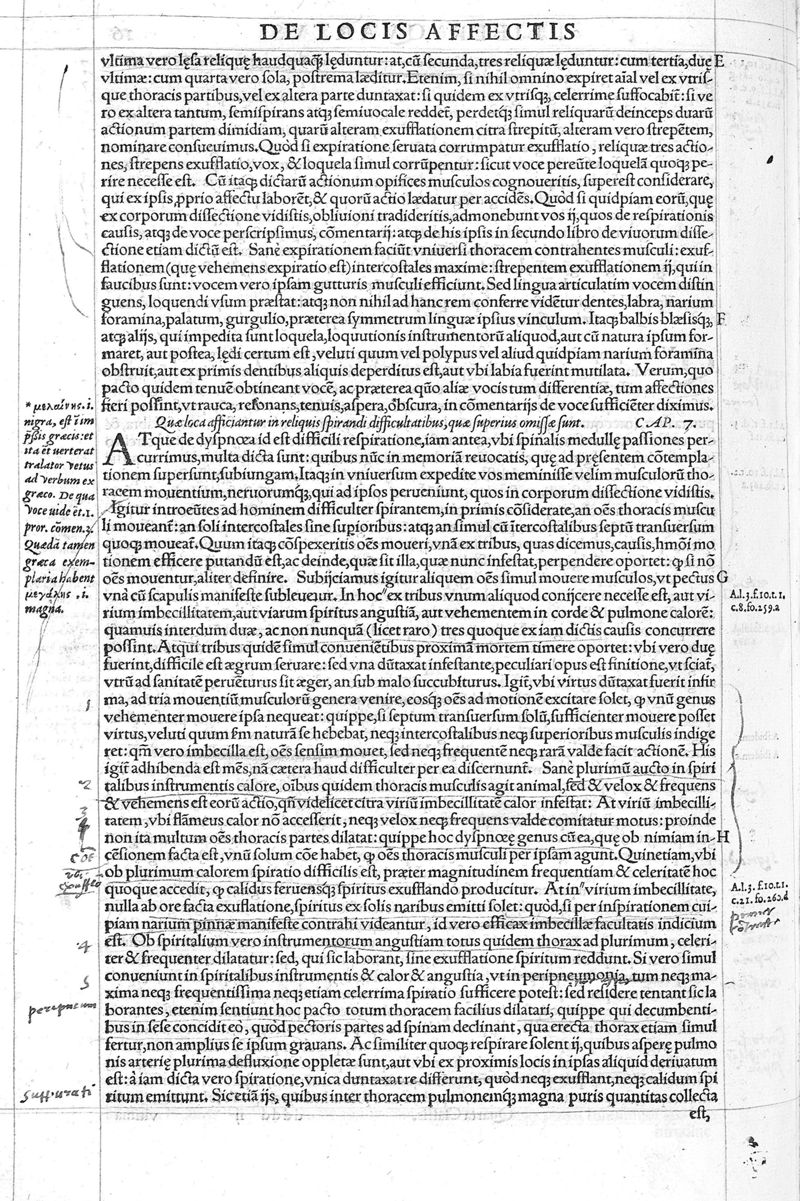 DE LOCIS AFFECTIS
vltima vero lęsa reliquę haudquaq̃ lęduntur: at, cũ secunda, tres reliquæ lęduntur: cum tertia, duę E
vltimæ: cum quarta vero sola, postrema læditur. Etenim, si nihil omnino expiret aĩal vel ex vtris-
que thoracis partibus, vel ex altera parte duntaxat: si quidem ex vtrisqȝ, celerrime suffocabit̃: si ve
ro ex altera tantum, semispirans atqȝ semiuocale reddet̃, perdetqȝ simul reliquarũ deinceps duarũ
actionum partem dimidiam, quarũ alteram exufflationem citra strepitũ, alteram vero strepẽtem,
nominare consueuimus. Quòd si expiratione seruata corrumpatur exufflatio, reliquæ tres actio-
nes, strepens exufflatio, vox, & loquela simul corrũpentur: sicut voce pereũte loquelã quoqȝ pe-
rire necesse est. Cũ itaqȝ dictarũ actionum opifices musculos cognoueritis, superest considerare,
qui ex ipsis, p̱prio affectu laborẽt, & quorũ actio lædatur per accidẽs. Quòd si quidpiam eorũ, quę
ex corporum dissectione vidistis, obliuioni tradideritis, admonebunt vos ij, quos de respirationis
causis, atqȝ de voce perscripsimus, cõmentarij: atqȝ de his ipsis in secundo libro de viuorum disse-
ctione etiam dictũ est. Sanè expirationem faciũt vniuersi thoracem contrahentes musculi: exuf-
flationem (quę vehemens expiratio est) intercostales maxime: strepentem exufflationem ij, qui in
faucibus sunt: vocem vero ipsam gutturis musculi efficiunt. Sed lingua articulatim vocem distin
guens, loquendi vsum præstat: atqȝ non nihil ad hanc rem conferre vidẽtur dentes, labra, narium
foramina, palatum, gurgulio, præterea symmetrum linguæ ipsius vinculum. Itaqȝ balbis blæsisqȝ, F
atqȝ alijs, qui impedita sunt loquela, loquutionis instrumentorũ aliquod, aut cũ natura ipsum for-
maret, aut postea, lędi certum est, veluti quum vel polypus vel aliud quidpiam narium foramina
obstruit, aut ex primis dentibus aliquis deperditus est, aut vbi labia fuerint mutilata. Verum, quo
pacto quidem tenuẽ obtineant vocẽ, ac præterea quõ aliæ vocis tum differentiæ, tum affectiones
fieri possint, vt rauca, resonans, tenuis, aspera, obscura, in cõmentarijs de voce sufficiẽter diximus.
Quæ loca afficiantur in reliquis spirandi difficultatibus, quæ superius omissæ sunt. CAP. 7.
ATque de dyspnœa id est difficili respiratione, iam antea, vbi spinalis medullę passiones per-
currimus, multa dicta sunt: quibus nũc in memoriã reuocatis, quę ad pręsentem cõtempla-
tionem supersunt, subiungam. Itaqȝ in vniuersum expedite vos meminisse velim musculorũ tho-
racem mouentium, neruorumqȝ, qui ad ipsos perueniunt, quos in corporum dissectione vidistis.
Igitur introeũtes ad hominem difficulter spirantem, in primis cõsiderate, an oẽs thoracis muscu
li moueant̃: an soli intercostales sine supioribus: atqȝ an simul cũ ĩtercostalibus septũ transuersum
quoqȝ moueat̃. Quum itaqȝ cõspexeritis oẽs moueri, vnã ex tribus, quas dicemus, causis, hmõi mo
tionem efficere putandũ est, ac deinde, quæ sit illa, quæ nunc infestat, perpendere oportet: ꝙ si nõ
oẽs mouentur, aliter definire. Subijciamus igitur aliquem oẽs simul mouere musculos, vt pectus G
vnà cũ scapulis manifeste subleuetur. In hoc ex tribus vnum aliquod conijcere necesse est, aut vi-
rium imbecillitatem, aut viarum spiritus angustiã, aut vehementem in corde & pulmone calorẽ:
quamuis interdum duæ, ac non nunquã (licet raro) tres quoque ex iam dictis causis concurrere
possint. Atqui tribus quidẽ simul conueniẽtibus proximã mortem timere oportet: vbi vero duę
fuerint, difficile est ægrum seruare: sed vna dũtaxat infestante, peculiari opus est finitione, vt sciat̃,
vtrũ ad sanitatẽ peruẽturus sit æger, an sub malo succubiturus. Igit̃, vbi virtus dũtaxat fuerit infir
ma, ad tria mouentiũ musculorũ genera venire, eosqȝ oẽs ad motionẽ excitare solet, ꝙ vnũ genus
vehementer mouere ipsa nequeat: quippe, si septum transuersum solũ, sufficienter mouere posset
virtus, veluti quum s̃m naturã se habebat, neqȝ intercostalibus neqȝ superioribus musculis indige
ret: qm̃ vero imbecilla est, oẽs sensim mouet, sed neqȝ frequentẽ neqȝ rarã valde facit actionẽ. His
igit̃ adhibenda est mẽs, nã cætera haud difficulter per ea discernunt̃. Sanè plurimũ aucto in spiri
talibus instrumentis calore, oĩbus quidem thoracis musculis agit animal, sed & velox & frequens
& vehemens est eorũ actio, qñ videlicet citra viriũ imbecillitatẽ calor infestat: At viriũ imbecilli-
tatem, vbi flãmeus calor nõ accesserit, neqȝ velox neqȝ frequens valde comitatur motus: proinde
non ita multum oẽs thoracis partes dilatat: quippe hoc dyspnœę genus cũ ea, quę ob nimiam in- H
cẽsionem facta est, vnũ solum cõe habet, ꝙ oẽs thoracis musculi per ipsam agunt. Quinetiam, vbi
ob plurimum calorem spiratio difficilis est, præter magnitudinem frequentiam & celeritatẽ hoc
quoque accedit, ꝙ calidus feruensqȝ spiritus exufflando producitur. At in virium imbecillitate,
nulla ab ore facta exufflatione, spiritus ex solis naribus emitti solet: quòd, si per inspirationem cui-
piam narium pinnæ manifeste contrahi videantur, id vero efficax imbecillæ facultatis indicium
est. Ob spiritalium vero instrumentorum angustiam totus quidem thorax ad plurimum, celeri-
ter & frequenter dilatatur: sed, qui sic laborant, sine exufflatione spiritum reddunt. Si vero simul
conueniunt in spiritalibus instrumentis & calor & angustia, vt in peripneumonia, tum neqȝ ma-
xima neqȝ frequentissima neqȝ etiam celerrima spiratio sufficere potest: sed residere tentant sic la
borantes, etenim sentiunt hoc pacto totum thoracem facilius dilatari, quippe qui decumbenti-
bus in sese concidit eò, quòd pectoris partes ad spinam declinant, qua erecta thorax etiam simul
fertur, non amplius se ipsum grauans. Ac similiter quoqȝ respirare solent ij, quibus asperę pulmo
nis arterię plurima defluxione oppletæ sunt, aut vbi ex proximis locis in ipsas aliquid deriuatum
est: à iam dicta vero spiratione, vnica duntaxat re differunt, quòd neqȝ exufflant, neqȝ calidum spi
ritum emittunt. Sic etiã ijs, quibus inter thoracem pulmonemqȝ magna puris quantitas collecta
est,
* μελαίνης .i.
nigra, est ĩ im
pssis græcis: et
ita et uerterat
tralator vetus
ad verbum ex
græco. De qua
voce uide et .1.
pror. cõmen. 2.
Quædã tamen
græca exem-
plaria habent
μεγάλης .i.
magna.
A.l.3.f.10.t.1.
c.8.fo.259.a
A.l.3.f.10.t.1.
c.21.fo.260.d
1
2
3
4
5
peripneum
suppurati